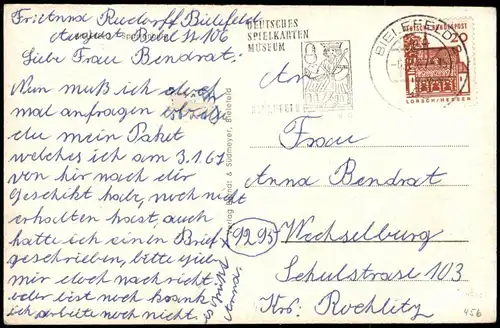 Frl Anna Rusdorff Bielefeld
August Bebel St 106
Liebe Frau Bendrat.
Nun muß ich doch
mal anfragen ob
du mein Paket
welches ich am 3.1.67
von hier nach dir
Geschikt habe, noch nicht
erhalten hast, auch
hatte ich einen Brief
geschrieben, bitte gib
mir doch nachricht.
oder bist noch krank
ich arbeite noch nicht.
es grüßt
Anna
Verlag Berndt & Südmeyer, Bielefeld
DEUTSCHES
SPIELKARTEN
MUSEUM
BIELEFELD
BIELEFELD
DEUTSCHE BUNDESPOST
20
LORSCH/HESSEN
An
Frau
Anna Bendrat
9295
Wechselburg
Schulstrase 103
Krs. Rochlitz
456